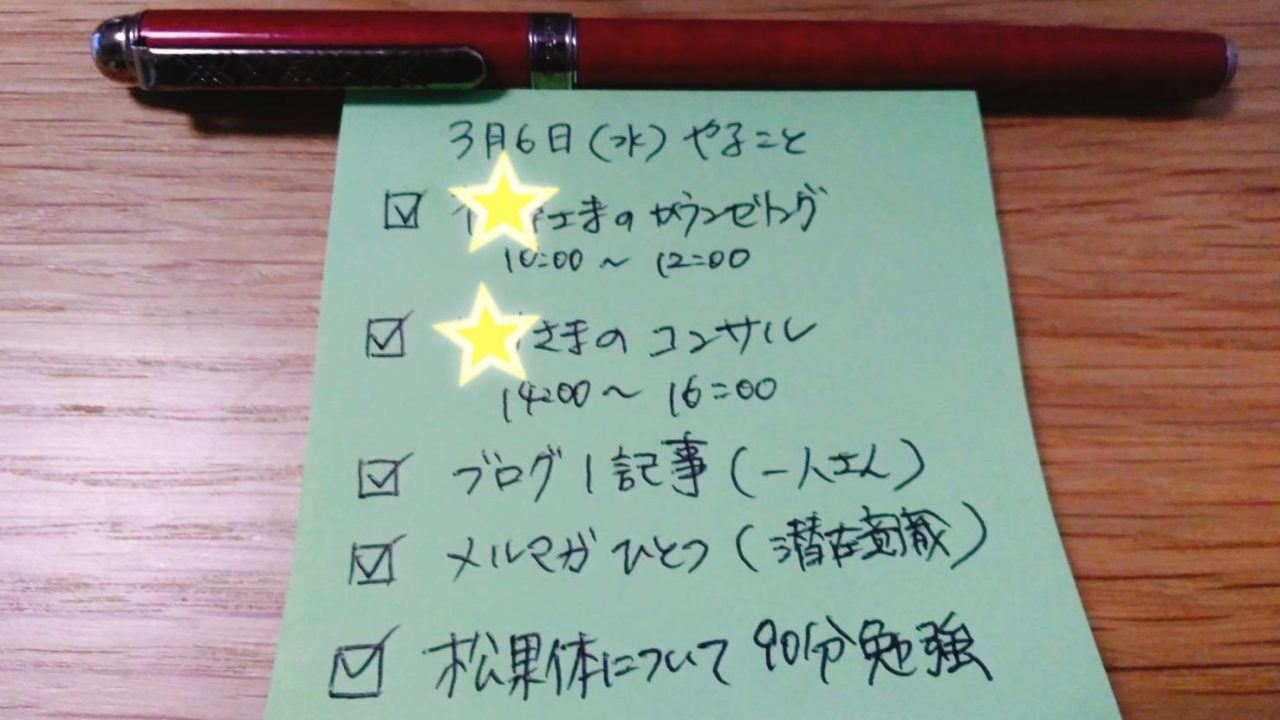 3月6日(水)やること
さまのカウンセリング
10:00～12:00
さまのコンサル
14:00～16:00
ブログ1記事(一人さん)
メルマガひとつ(潜在意識)
松果体について90分勉強